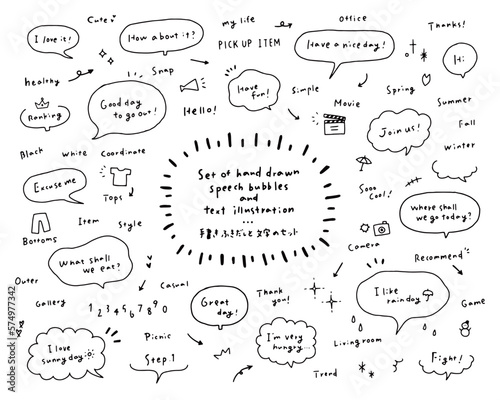 Cute
my life
Office
Thanks!
I love it!
How about it?
PICK UP ITEM
Have a nice day!
Hi
healthy
Snap
Ranking
Good day
to go out!
Hello!
Have
fun!
Simple
Movie
Spring
Summer
Join us!
Fall
Winter
Black
White
Coordinate
Excuse me
Tops
Set of hand drawn
speech bubbles
and
text illustration
...
手書きふきだしと文字のセット
Sooo
Cool!
Where shall
we go today?
Bottoms
Item
Style
Camera
What shall
we eat?
Recommend
Outer
Gallery
1 2 3 4 5 6 7 8 9 0
Casual
Great
day!
Thank
you!
I like
rainday
Game
I love
sunny day
Picnic
Step.1
I'm very
hungry...
Living room
Trend
Fight!
Adobe Stock | #574977342